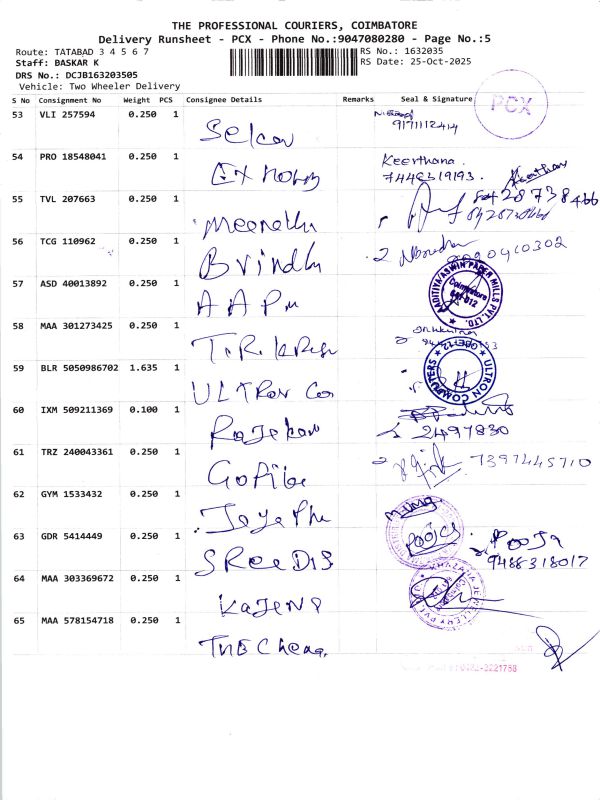 THE PROFESSIONAL COURIERS, COIMBATORE
Delivery Runsheet - PCX - Phone No.:9047080280 - Page No.:5
Route: TATABAD 3 4 5 6 7
RS No.: 1632035
Staff: BASKAR K
RS Date: 25-Oct-2025
DRS No.: DCJB163203505
Vehicle: Two Wheeler Delivery
PCX
S No Consignment No Weight PCS Consignee Details Remarks Seal & Signature
53 VLI 257594 0.250 1
9171112414
Selca
54 PRO 18548041 0.250 1 Keerthana.
7448319193.
55 TVL 207663 0.250 1
Meenathu
56 TCG 110962 0.250 1
Brindhu
57 ASD 40013892 0.250 1
AADITYA/ASWIN PAPER MILLS PVT. LTD.
Coimbatore
641 012
AAPM
58 MAA 301273425 0.250 1
T.R.Krish
59 BLR 5050986702 1.635 1
ULTRON COMPUTERS
CBE-12
ULTRON Co
60 IXM 509211369 0.100 1
2497830
Rajekar
61 TRZ 240043361 0.250 1 7397445710
Gopibe
62 GYM 1533432 0.250 1
Jeya Phe
63 GDR 5414449 0.250 1 Pooja
9488318017
SReeDis
64 MAA 303369672 0.250 1
KAJENP
65 MAA 578154718 0.250 1
TNEChenn.